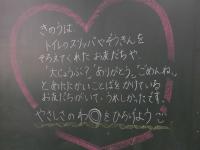 きのうは
トイレのスリッパやぞうきんを
そろえてくれたお友だちや、
「大じょうぶ?」「ありがとう。」「ごめんね。」
とあたたかいことばをかけている
お友だちがいて、うれしかったです。
やさしさのわ◎をひろげよう